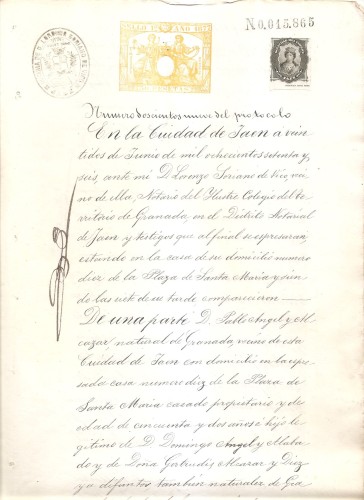 N0,015,865
Numero doscientos nueve del protocolo
En la Ciudad de Jaen a vein
tidos de Junio de mil ochocientos setenta y
seis, ante mi D. Lorenzo Soriano de Vico, veci
no de ella, Notario del Ilustre Colegio del ter
ritorio de Granada, en el Distrito Notarial
de Jaen, y testigos que al final se expresaran,
estando en la casa de su domicilio numero
diez de la Plaza de Santa Maria y sien
do las siete de su tarde comparecieron
De una parte D. Pablo Angel y Al
cazar, natural de Granada, vecino de esta
Ciudad de Jaen con domicilio en la espre
sada casa numero diez de la Plaza de
Santa Maria casado propietario y de
edad de cincuenta y dos años é hijo le
gitimo de D. Domingo Angel y
do y de Doña Gertrudis Alcazar y Diez
ya difuntos tambien naturales de Gra